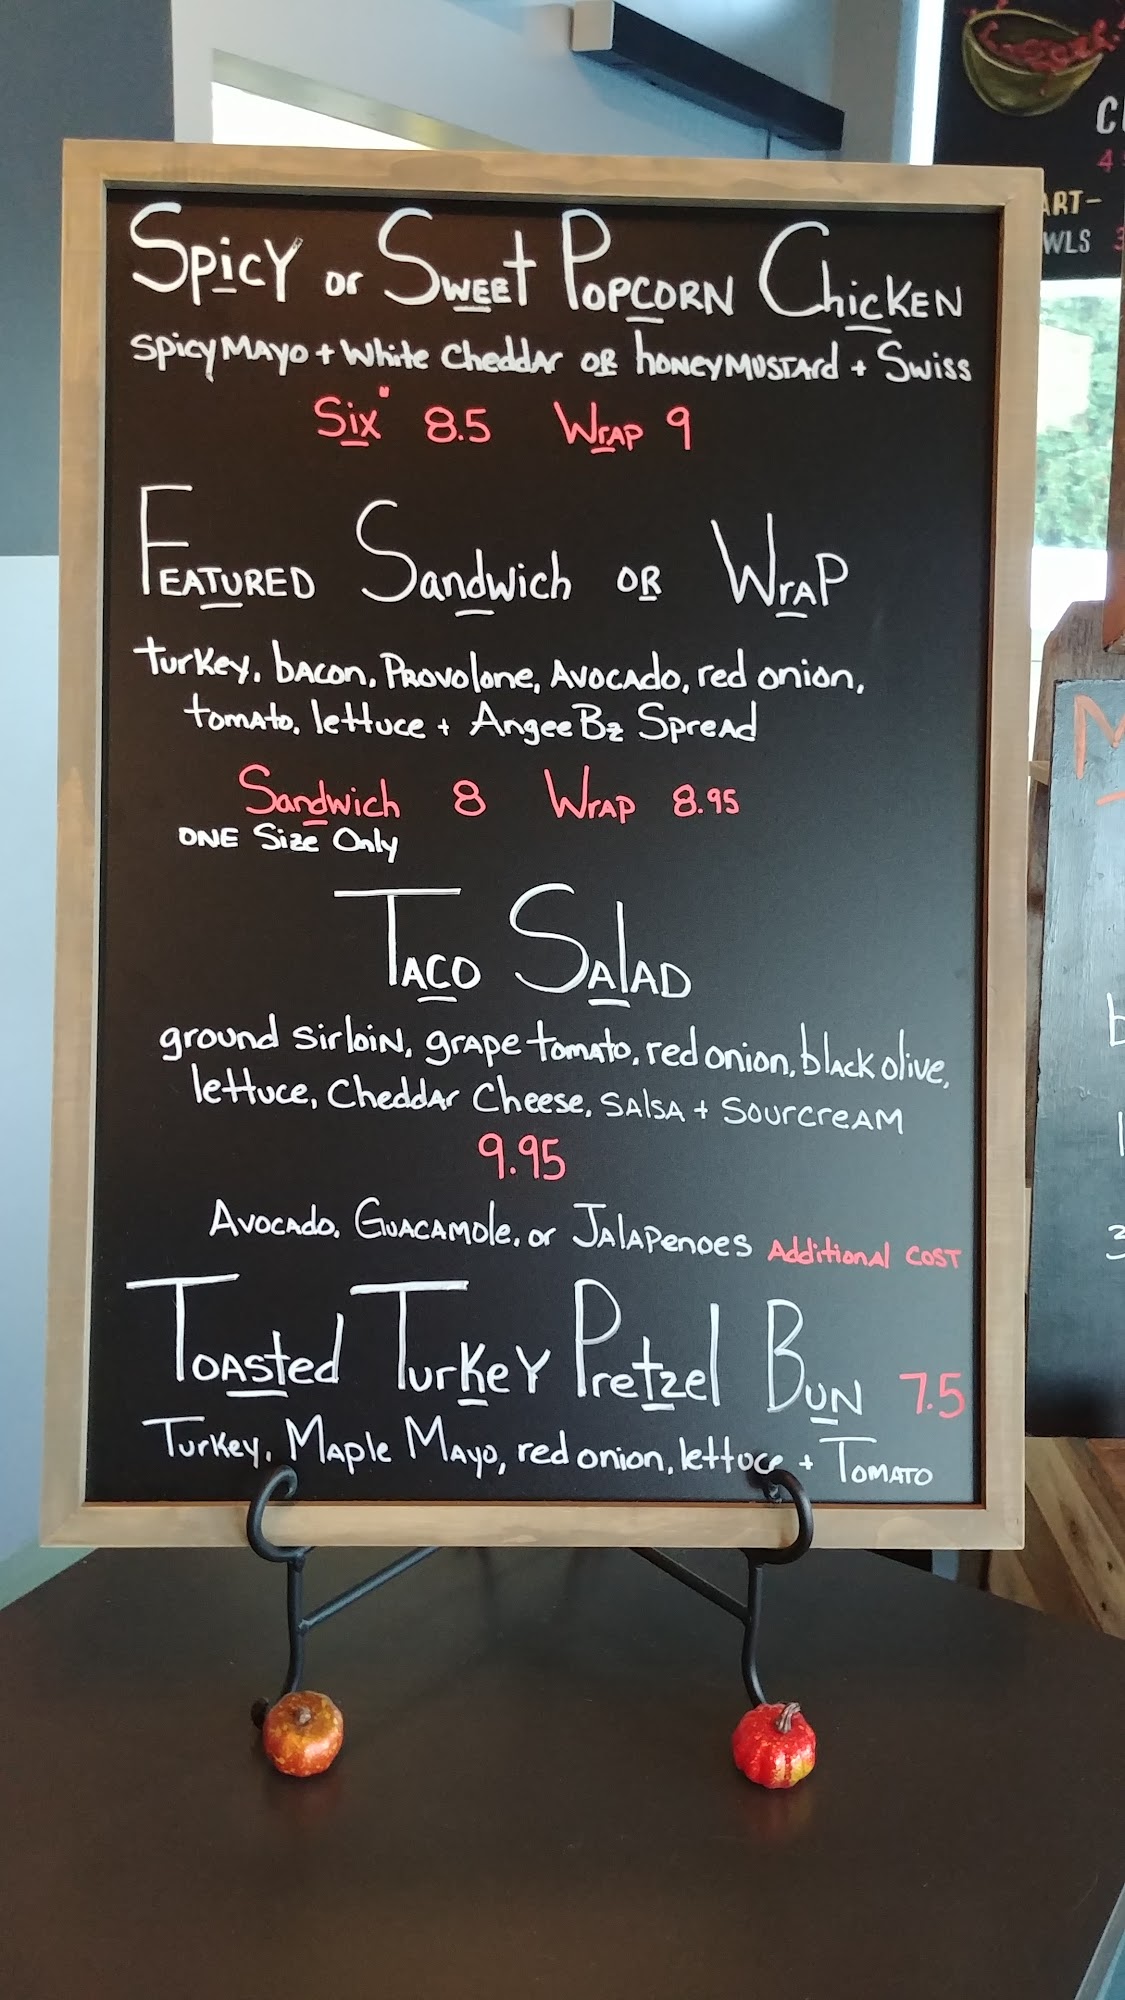 Spicy or Sweet Popcorn Chicken
Spicy Mayo + White Cheddar or honey mustard + Swiss
Six" 8.5 Wrap 9
Featured Sandwich or Wrap
turkey, bacon, Provolone, Avocado, red onion,
tomato, lettuce + Angee Bz Spread
Sandwich 8 Wrap 8.95
ONE Size Only
Taco Salad
ground sirloin, grape tomato, red onion, black olive,
lettuce, Cheddar Cheese, Salsa + Sourcream
9.95
Avocado, Guacamole, or Jalapenoes Additional Cost
Toasted Turkey Pretzel Bun 7.5
Turkey, Maple Mayo, red onion, lettuce + Tomato